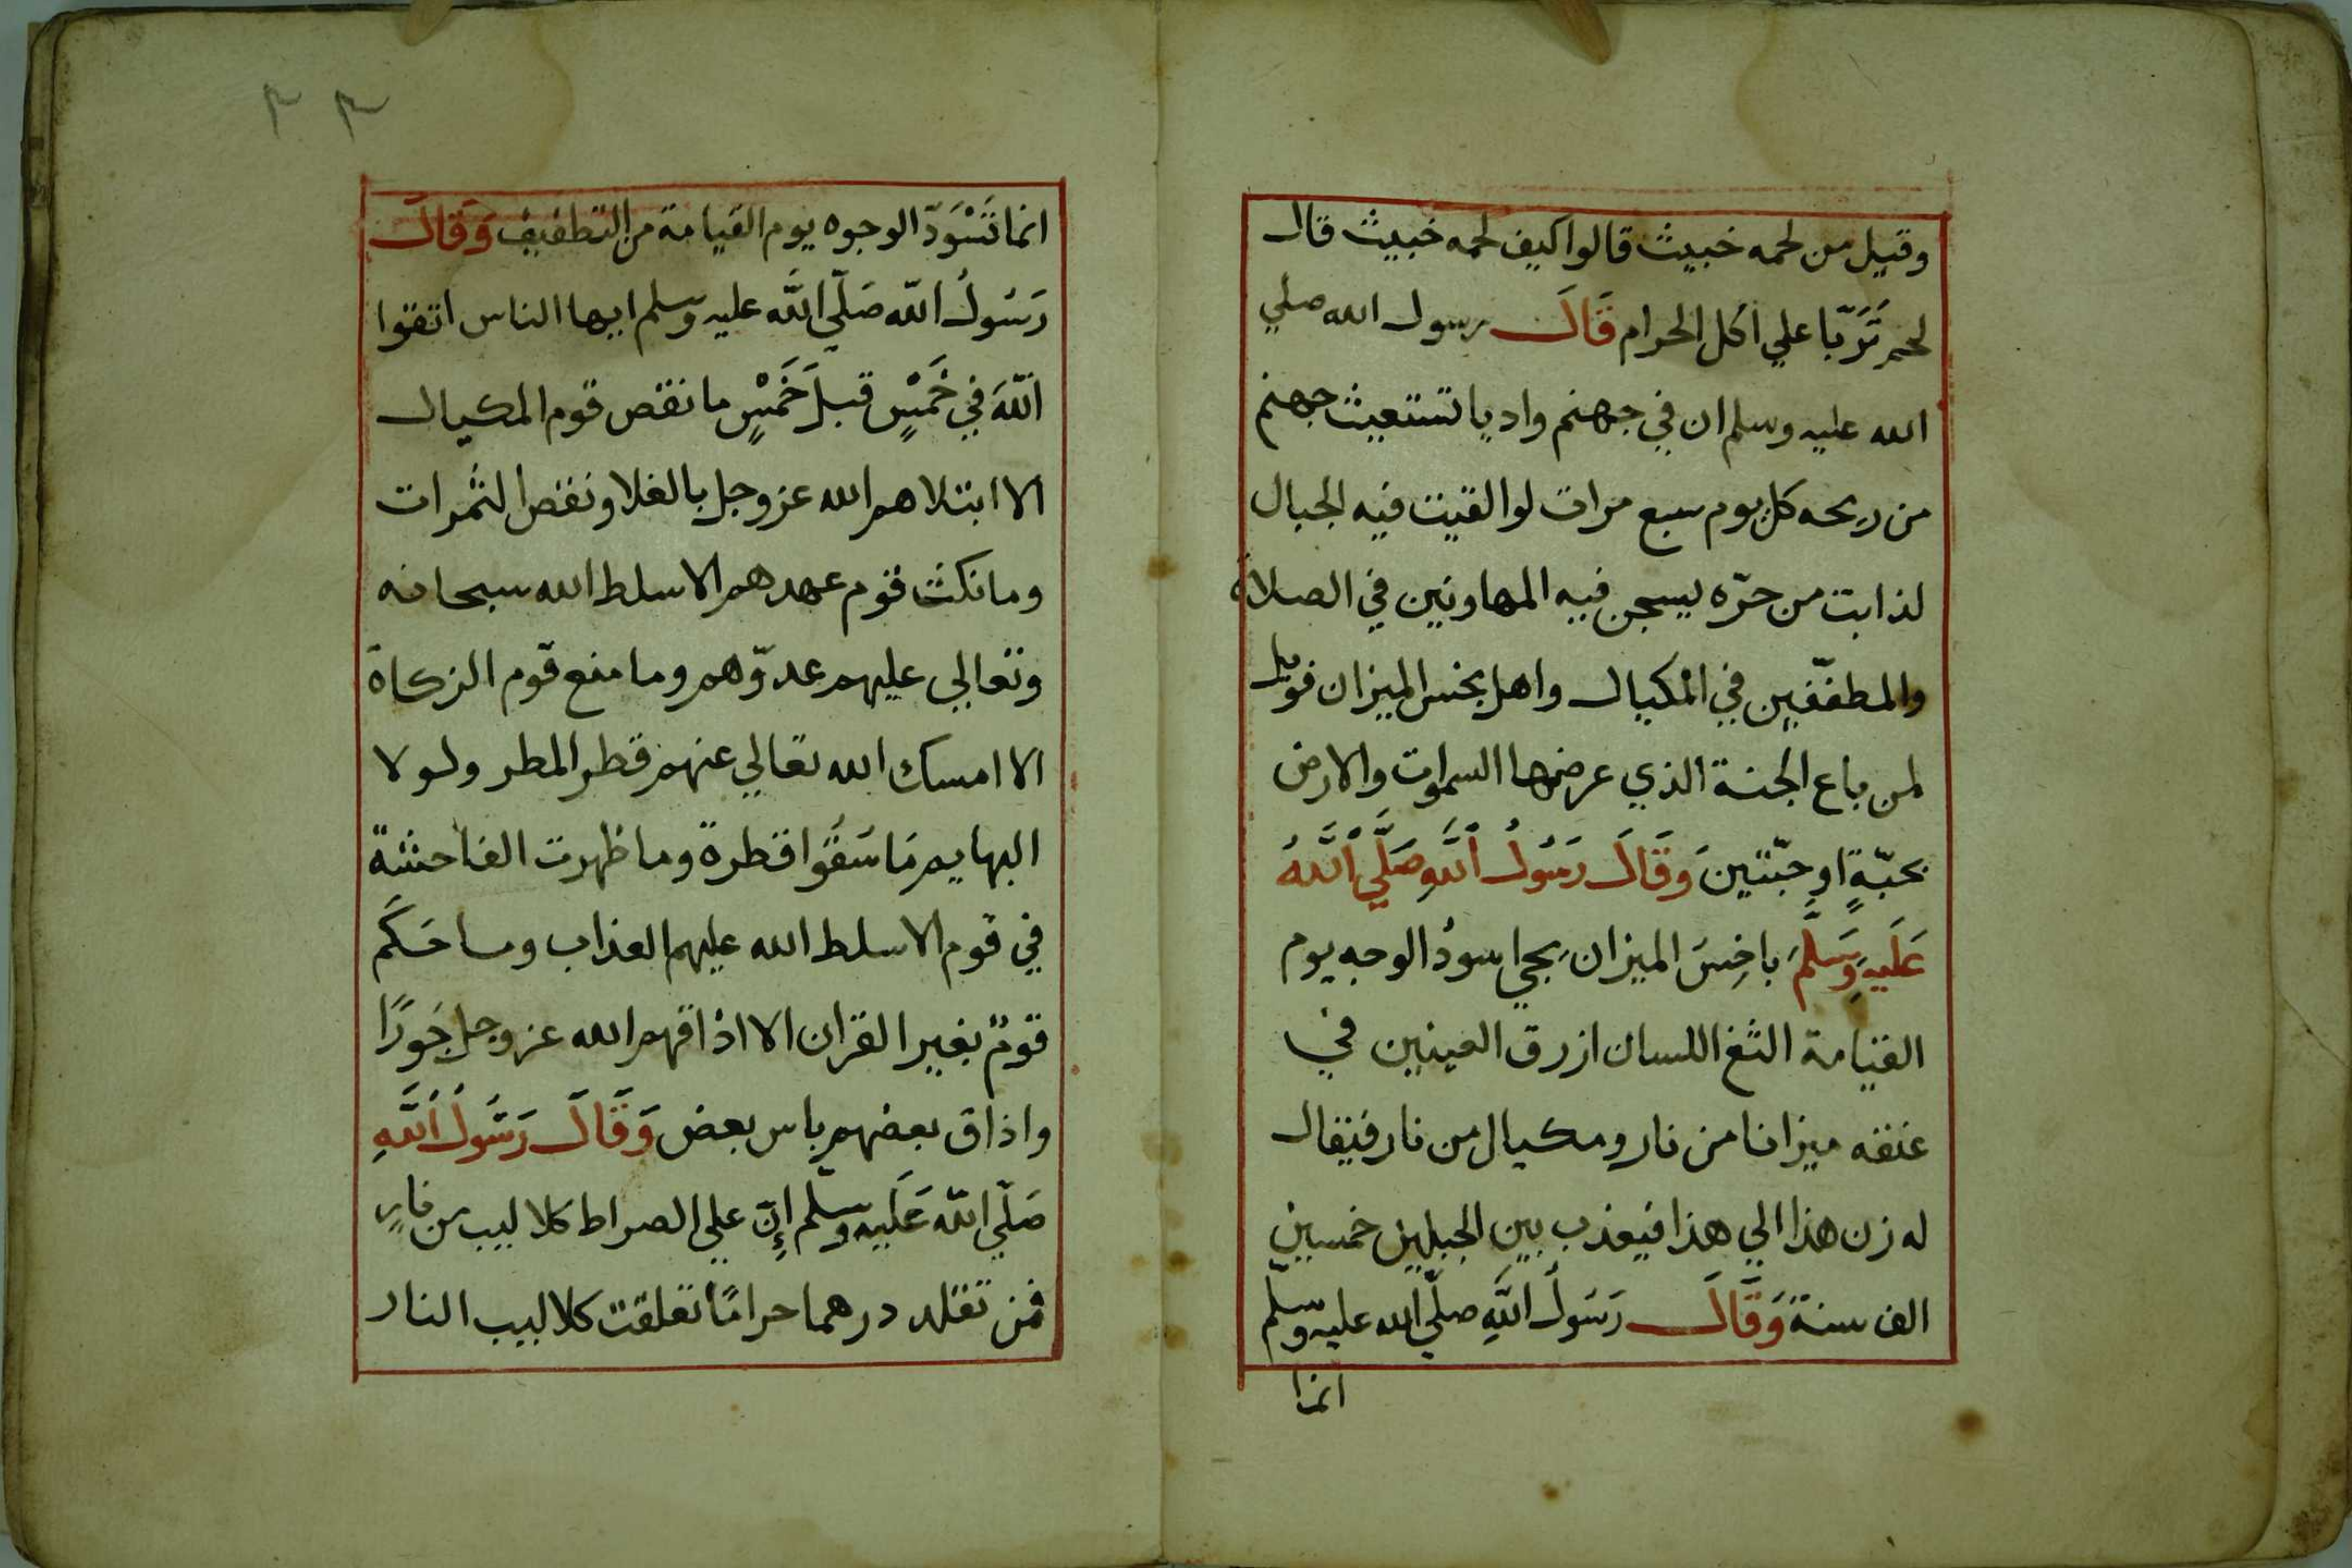 وقيل من لحمه خبيث قالوا كيف لحمه خبيث قال
لحم تَرَبّا علي اكل الحرام قَالَ رسول الله صلي
الله عليه وسلم ان في جهنم واديا تستغيث جهنم
من ريحه كل يوم سبع مرات لو القيت فيه الجبال
لذابت من حرّه يسجن فيه المهاونين في الصلاة
والمطفّفين في المكيال واهل بخس الميزان فويل
لمن باع الجنة الذي عرضها السموات والارض
بحبّةٍ او حبّتين وَقَالَ رَسُولُ اَللَّهِ صَلَّي اَللَّهُ
عَلَيهِ وَسَلَّمَ باخِسَ الميزان يجي اسودُ الوجه يوم
القيامة الثغ اللسان ازرق العينين في
عنقه ميزانا من نار ومكيال من نار فيقال
له زن هذا الي هذا فيعذب بين الجبلين خمسين
الف سنة وَقَالَ رَسَولُ اللَّهِ صلّي الله عليه وسلم
انما
٣٣
انما تَسْوَدّ الوجوه يوم القيامة من التطفيف وَقَالَ
رَسُولُ اللّه صَلّي اللَّه عليه وسلم ايها الناس اتقوا
اللّهَ في خَمْسٍ قبلَ خَمْسٍ ما نقص قوم المكيال
الا ابتلاهم الله عز وجل بالغلا ونقص الثمرات
وما نكث قوم عهدهم الا سلط الله سبحانه
وتعالي عليهم عدوّهم وما منع قوم الزكاة
الا امسك الله تعالي عنهم قطر المطر ولولا
البهايم مَا سُقُوا قطرة وما ظهرت الفاحشة
في قوم الا سلط الله عليهم العذاب وما حَكَم
قومٌ بغير القران الا اذاقهم الله عز وجل جَورًا
واذاق بعضهم باس بعض وَقَالَ رَسُولُ اَللَّهِ
صَلّي اللّه عَلَيه وسلّم إِنّ علي الصراط كلاليب من نارٍ
فمن تقلد درهما حرامًا تعلقت كلاليب النار